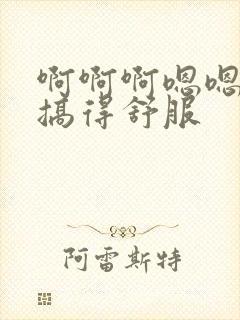 啊啊啊嗯嗯
搞得舒服
阿雷斯特